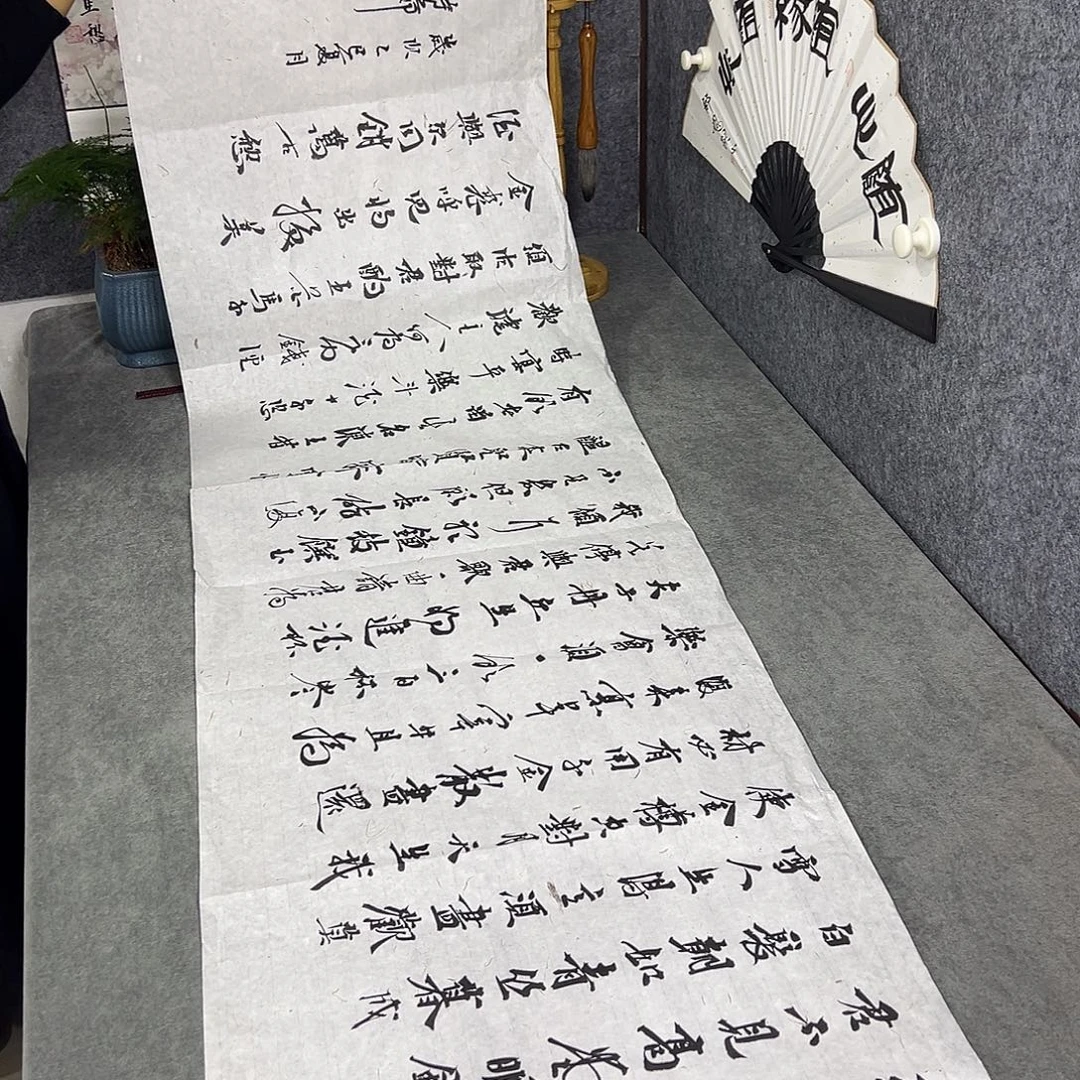 君不見高堂明
白髮朝如青丝暮成
雪人生得意須盡歡莫
使金樽空對月天生我
材必有用千金散盡還
復来烹羊宰牛且為
樂會須一飲三百杯岑
夫子丹丘生將進酒杯
莫停與君歌一曲請君為
我傾耳听鐘鼓饌玉
不足貴但願長醉不復
醒古来聖賢皆寂寞惟
有飲者留其名陳王昔
時宴平樂斗酒十千恣
歡謔主人何為言少錢徑
須沽取對君酌五花馬千
金裘呼兒將出換美
酒與尔同銷萬古愁
歲次乙巳夏月